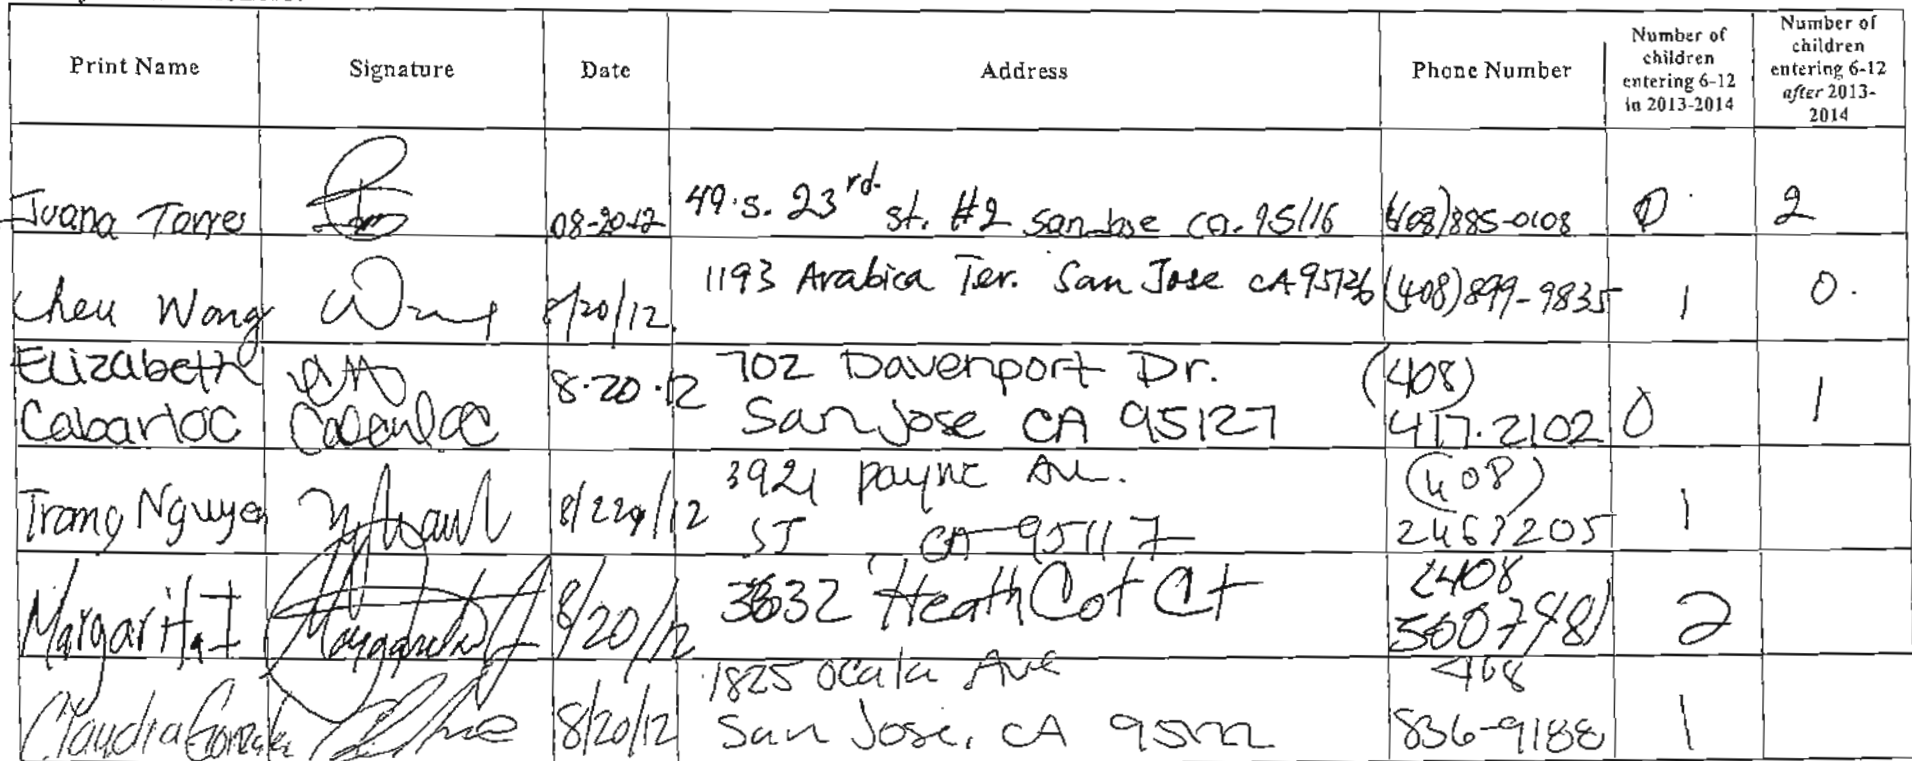 Print Name Signature Date Address Phone Number Number of children entering 6-12 in 2013-2014 Number of children entering 6-12 after 2013-2014
Juana Torres 08-20-12 49 S. 23rd. st. #2 San Jose Ca. 95116 (408)885-0108 0 2
Cheu Wong Wong 8/20/12 1193 Arabica Ter. San Jose CA (408)899-9835 1 0.
Elizabeth Cabarloc 8.20.12 702 Davenport Dr. (408)
San Jose CA 95127 417.2102 0 1
Trang Nguyen 3921 Payne Av. (408)
SJ CA 95117 2463205 1
Margarita I 8/20/12 3632 HeathCot Ct 408
5607481 2
Claudia Gonzalez 8/20/12 1825 Ocala Ave 408
San Jose, CA 95122 836-9188 1